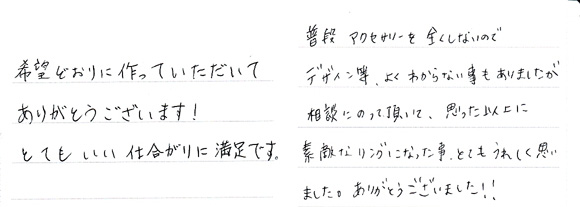 希望どおりに作っていただいて
ありがとうございます!
とてもいい仕合がりに満足です。
普段 アクセサリーを全くしないので
デザイン等、よくわからない事もありましたが
相談にのって頂いて、思った以上に
素敵なリングになった事、とてもうれしく思い
ました。ありがとうございました!!